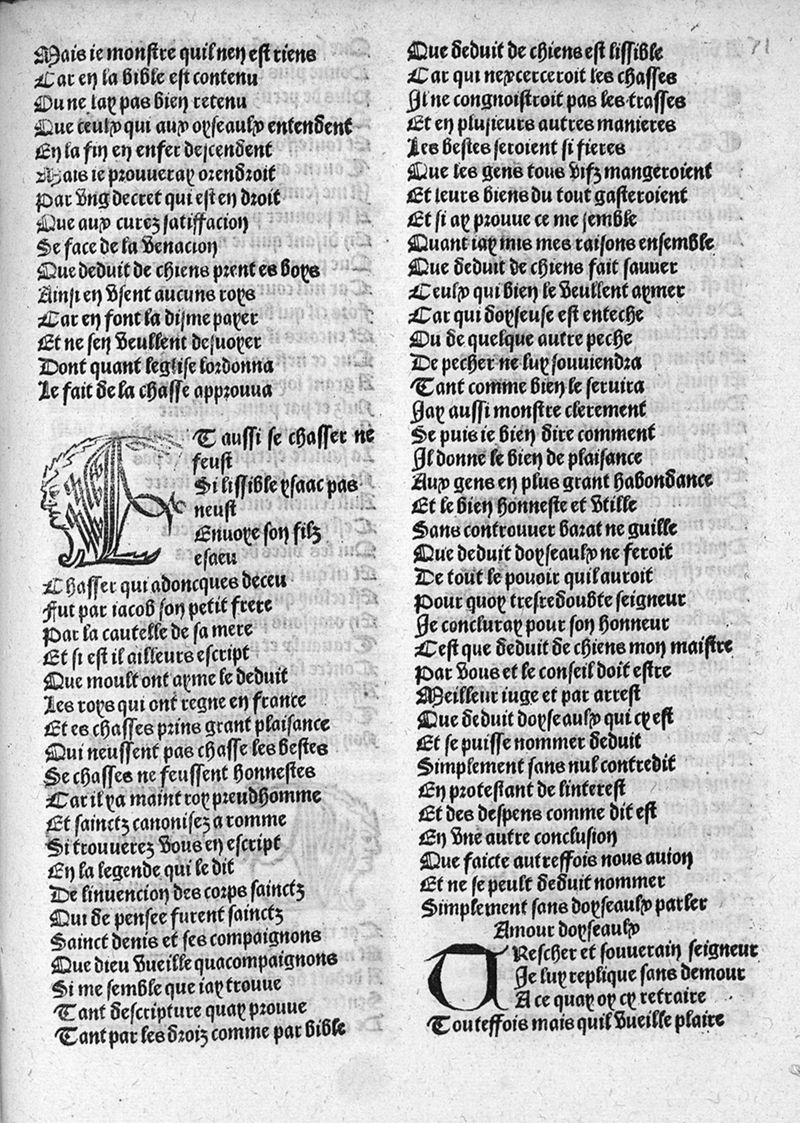 Mais ie monstre quil nen est riens
Car en la bible est contenu
Ou ne lay pas bien retenu
Que ceulx qui aux oyseaulx entendent
En la fin en enfer descendent
Mais ie prouueray orendroit
Par vng decret qui est en droit
Que aux curez satiffacion
Se face de la venacion
Que deduit de chiens prent es boys
Ainsi en vsent aucuns roys
Car en font la disme payer
Et ne sen veullent desuoyer
Dont quant leglise lordonna
Le fait de la chasse approuua
ET aussi se chasser ne
feust
Si lissible ysaac pas
neust
Enuoye son filz
esaeu
Chasser qui adoncques deceu
Fut par iacob son petit frere
Par la cautelle de sa mere
Et si est il ailleurs escript
Que moult ont ayme le deduit
Les roys qui ont regne en france
Et es chasses prins grant plaisance
Qui neussent pas chasse les bestes
Se chasses ne feussent honnestes
Car il ya maint roy preudhomme
Et sainctz canonisez a romme
Si trouuerez vous en escript
En la legende qui le dit
De linuencion des corps sainctz
Qui de pensee furent sainctz
Sainct denis et ses compaignons
Que dieu vueille quacompaignons
Si me semble que iay trouue
Tant descripture quay prouue
Tant par les droiz comme par bible
Que deduit de chiens est lissible
Car qui nexcerceroit les chasses
Il ne congnoistroit pas les trasses
Et en plusieurs autres manieres
Les bestes seroient si fieres
Que les gens tous vifz mangeroient
Et leurs biens du tout gasteroient
Et si ay prouue ce me semble
Quant iay mis mes raisons ensemble
Que deduit de chiens fait sauuer
Ceulx qui bien le veullent aymer
Car qui doyseuse est enteche
Ou de quelque autre peche
De pecher ne luy souuiendra
Tant comme bien le seruira
Jay aussi monstre clerement
Se puis ie bien dire comment
Il donne le bien de plaisance
Aux gens en plus grant habondance
Et le bien honneste et vtille
Sans controuuer barat ne guille
Que deduit doyseaulx ne feroit
De tout le pouoir quil auroit
Pour quoy tresredoubte seigneur
Je concluray pour son honneur
Cest que deduit de chiens mon maistre
Par vous et le conseil doit estre
Meilleur iuge et par arrest
Que deduit doyseaulx qui cy est
Et se puisse nommer deduit
Simplement sans nul contredit
En protestant de linterest
Et des despens comme dit est
En vne autre conclusion
Que faicte autreffois nous auion
Et ne se peult deduit nommer
Simplement sans doyseaulx parler
Amour doyseaulx
TRescher et souuerain seigneur
Je luy replique sans demour
A ce quay oy cy retraire
Touteffois mais quil vueille plaire